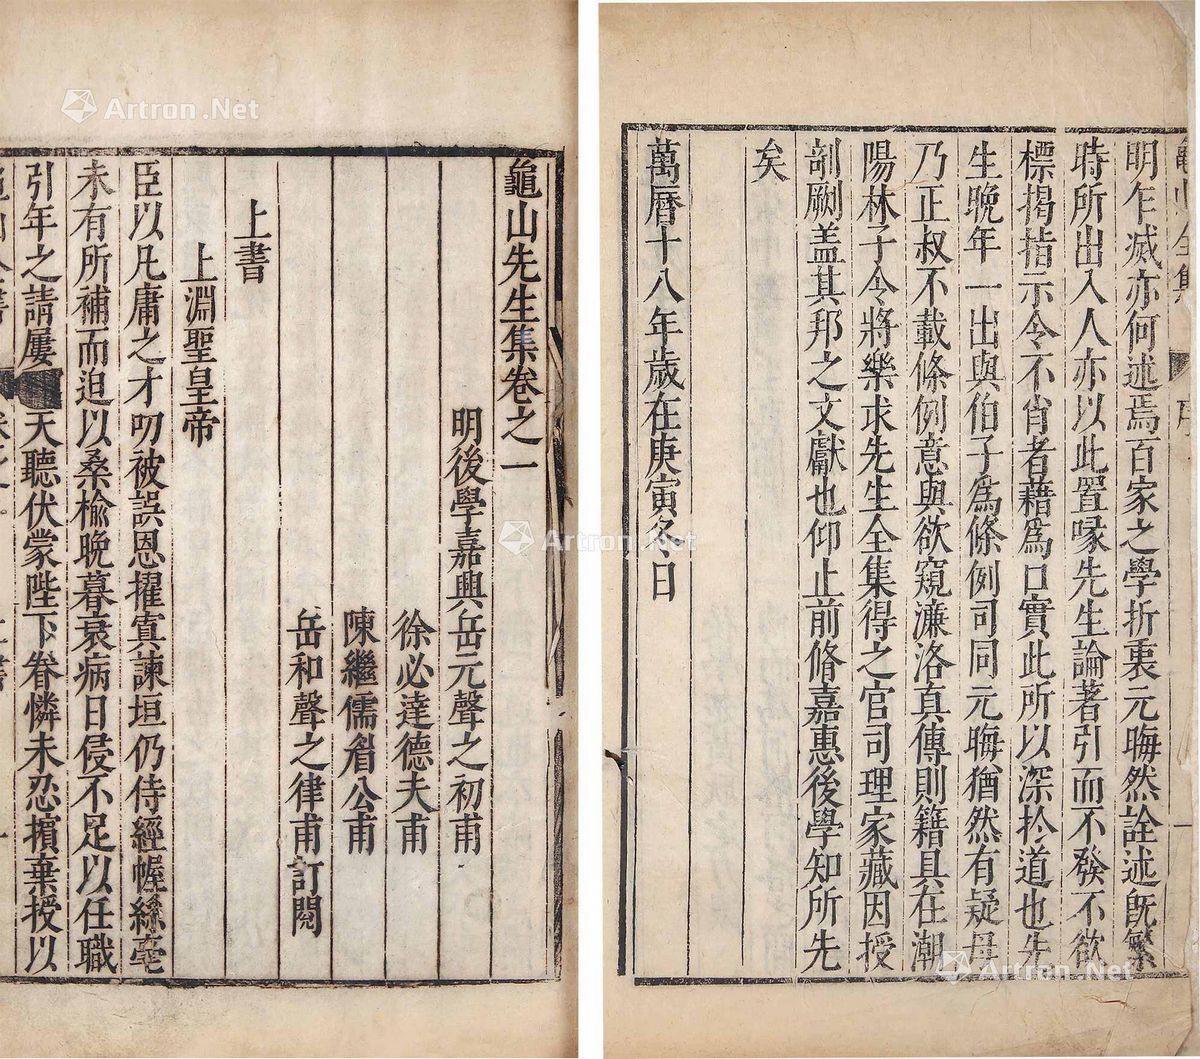 明乍滅亦何述焉百家之學折裏元晦然詮述旣繁
時所出入人亦以此置喙先生論著引而不發不欲
標揭指示令不肖者藉爲口實此所以深於道也先
生晚年一出與伯子爲條例司同元晦猶然有疑毋
乃正叔不載條例意與欲窺濂洛真傳則籍具在潮
陽林子令將樂求先生全集得之官司理家藏因授
剞劂盖其邦之文獻也仰止前脩嘉惠後學知所先
矣
萬曆十八年歲在庚寅冬日
龜山先生集卷之一
明後學嘉興岳元聲之初甫
徐必達德夫甫
陳繼儒眉公甫
岳和聲之律甫訂閱
上書
上淵聖皇帝
臣以凡庸之才叨被誤恩擢寘諫垣仍侍經幄絲毫
未有所補而迫以桑榆晚暮衰病日侵不足以任職
引年之請屢
天聽伏蒙陛下眷憐未忍擯棄授以
Artron.Net
Artron.Net
Artron.Net